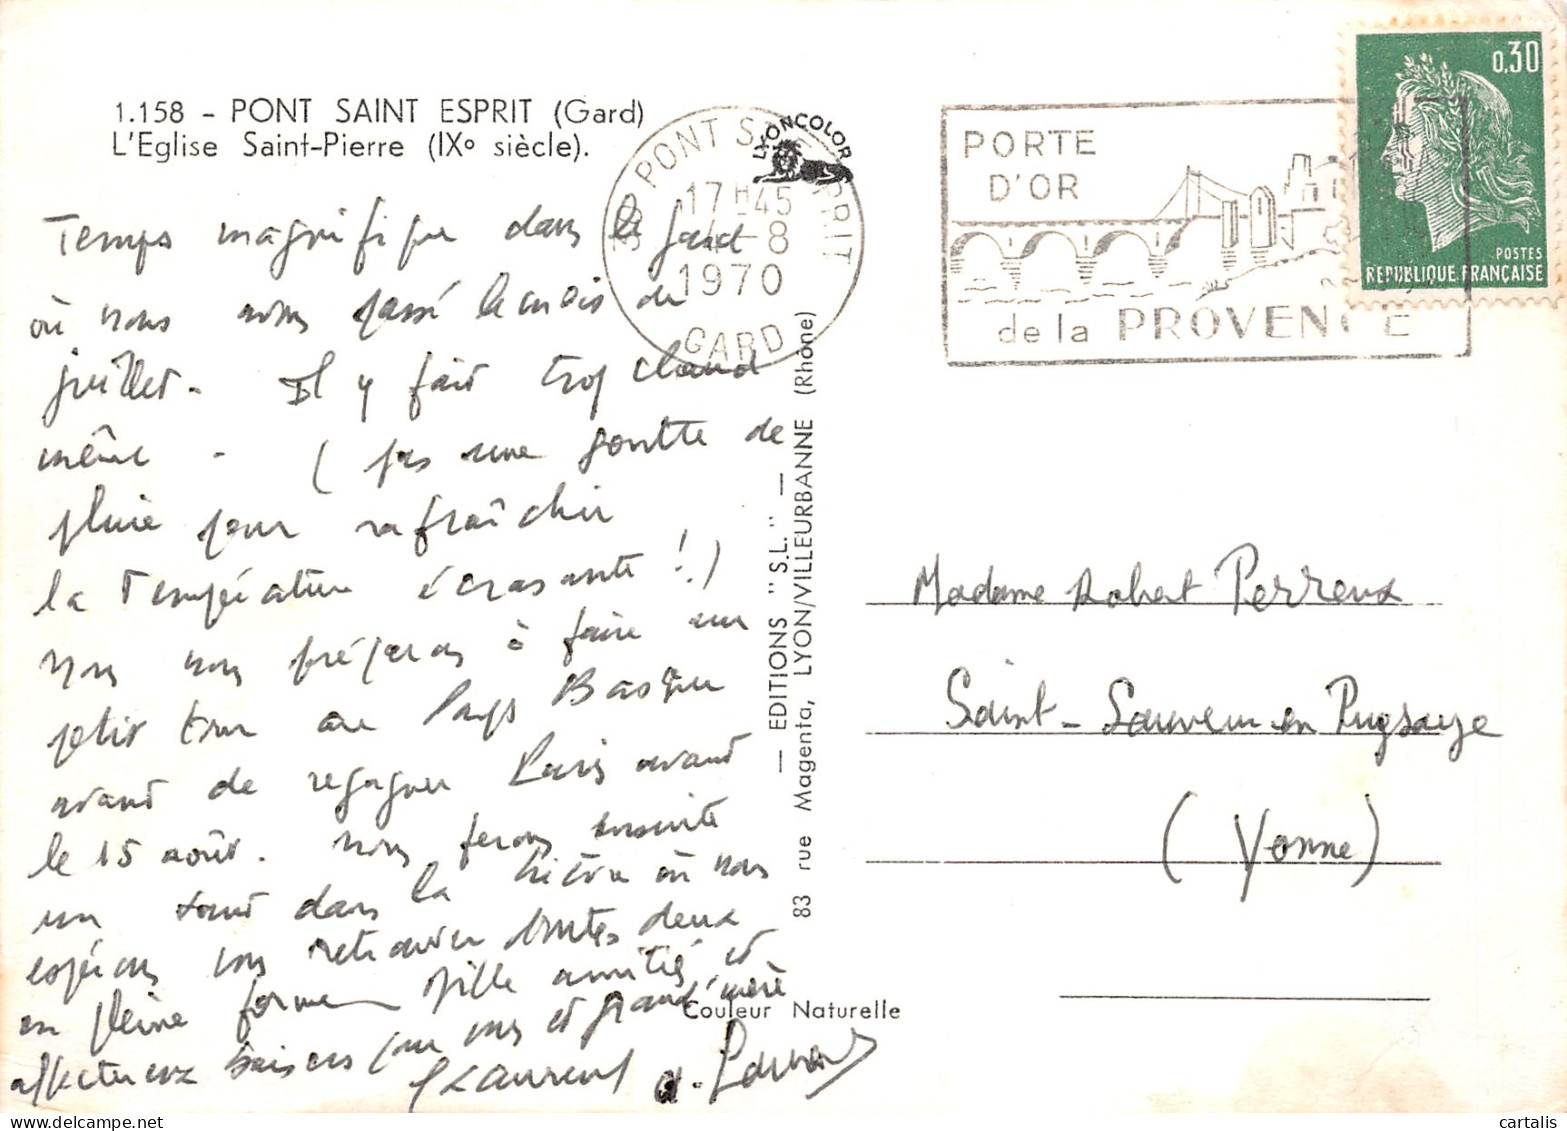 1.158 - PONT SAINT ESPRIT (Gard)
L'Eglise Saint-Pierre (IXº siècle).
Temps magnifique dans le gard
où nous avons passé le mois de
juillet. Il y fait trop chaud
même - (pas une goutte de
pluie pour rafraîchir
la température écrasante !)
Nous nous préparons à faire un
petit tour au Pays Basque
avant de regagner Paris avant
le 15 août. Nous ferons ensuite
un saut dans la où nous
espérons vous retrouver toutes deux
en pleine forme Mille amitiés et
affectueux baisers pour vous et grand'mère
Laurent
LYONCOLOR
PONT ST ESPRIT
17H45
-8
1970
GARD
— EDITIONS "S.L." —
83 rue Magenta, LYON/VILLEURBANNE (Rhône)
Couleur Naturelle
PORTE
D'OR
de la PROVENCE
0,30
POSTES
REPUBLIQUE FRANÇAISE
Madame Robert Perreux
Saint-Sauveur en Puysaye
(Yonne)
cartalis